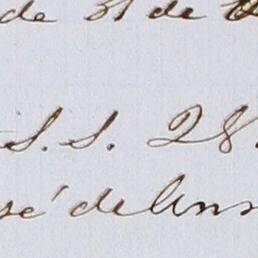 de 31 de
S. S. 28.
sé de Uns